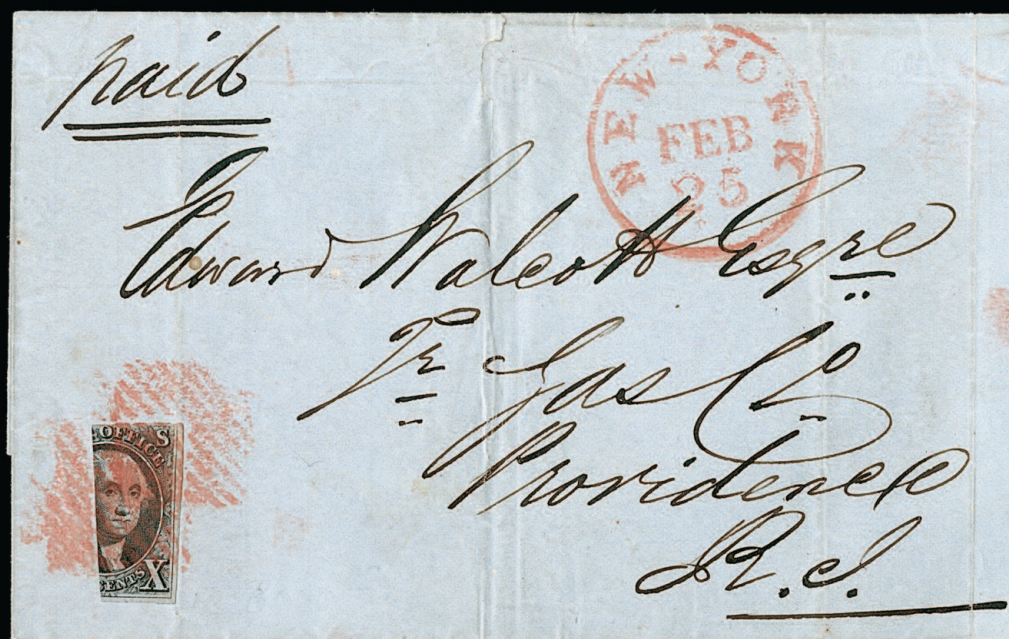 paid
NEW-YORK
FEB
25
Edward Walcott Esqre
Tr Gas Co
Providence
R.I.
OFFICE S
CENTS X